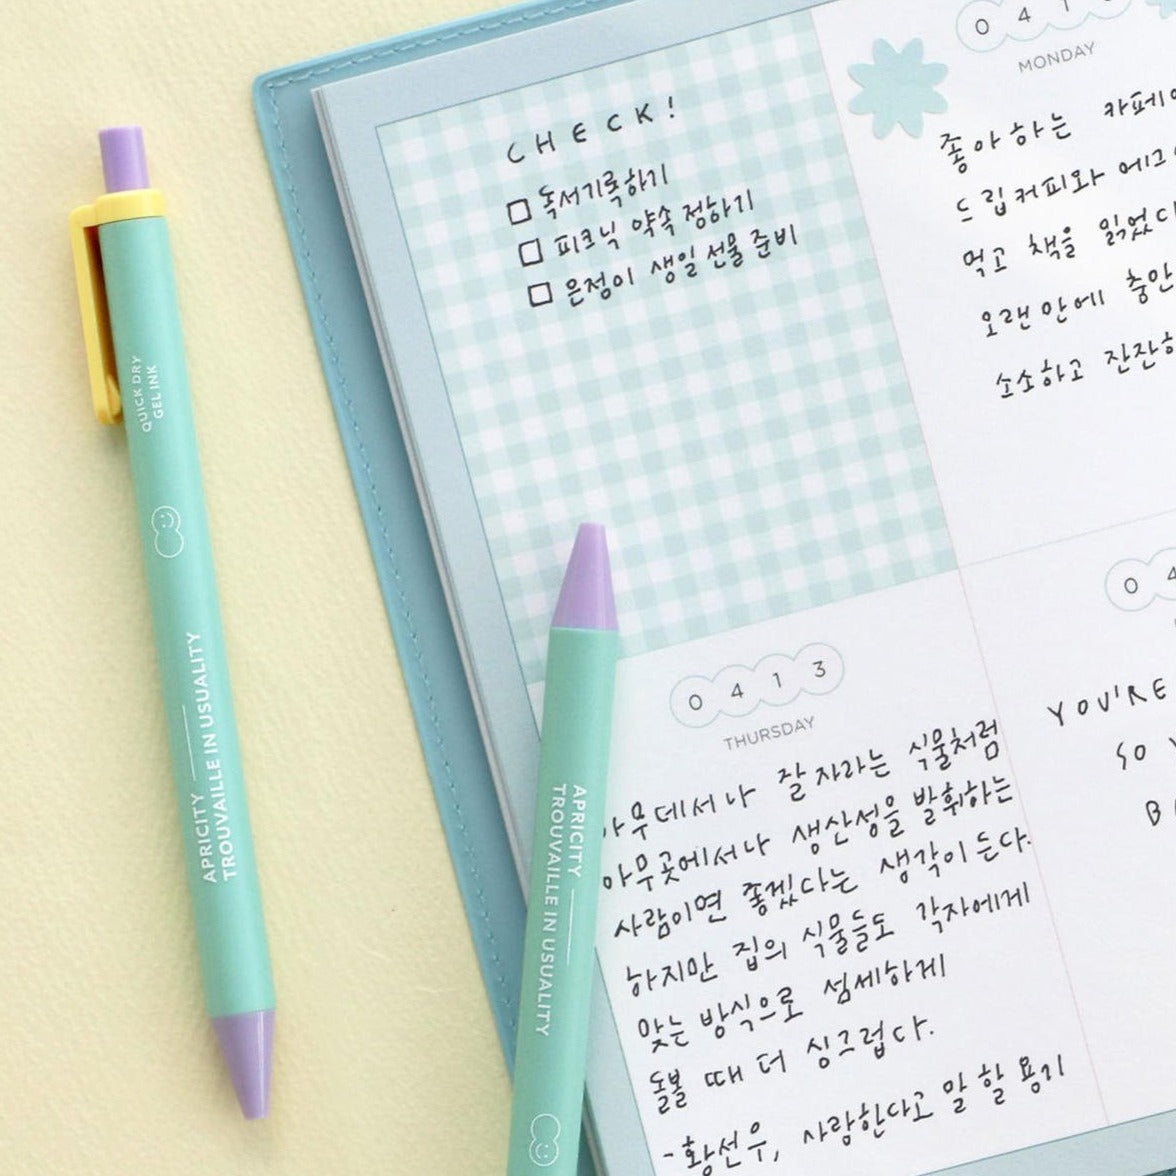 QUICK DRY
GEL INK
APRICITY
TROUVAILLE IN USUALITY
APRICITY
TROUVAILLE IN USUALITY
CHECK!
독서기록하기
피크닉 약속 정하기
은정이 생일 선물 준비
0 4 1
MONDAY
좋아하는 카페에
드립커피와 에그
먹고 책을 읽었다
오랜만에 충만
소소하고 잔잔하
0 4 1 3
THURSDAY
아무데서나 잘 자라는 식물처럼
아무곳에서나 생산성을 발휘하는
사람이면 좋겠다는 생각이 든다.
하지만 집의 식물들도 각자에게
맞는 방식으로 섬세하게
돌볼 때 더 싱그럽다.
-황선우, 사랑한다고 말할 용기
0 4
YOU'RE
SO
B